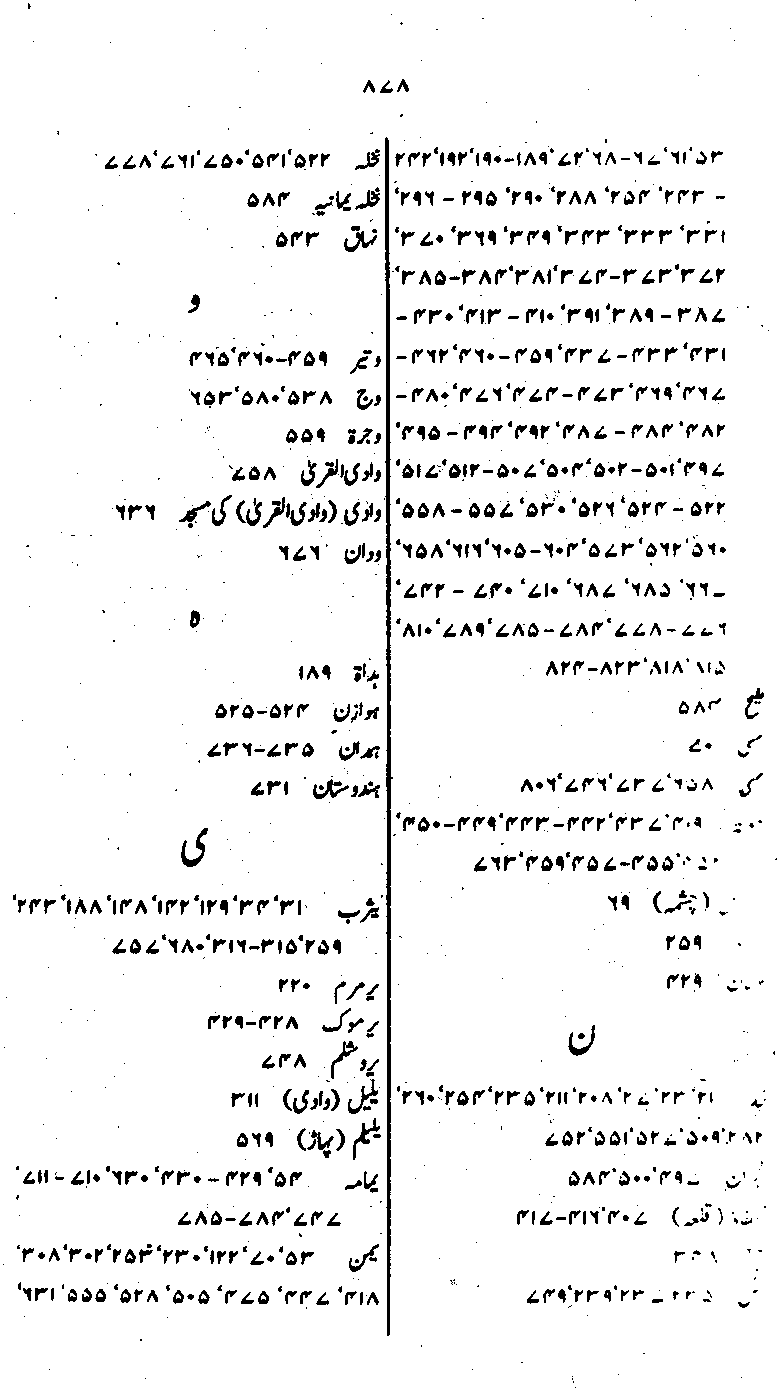 ۸۷۸
۵۳٬۶۱٬۶۷-۶۸٬۷۲٬۱۸۹-۱۹۰٬۱۹۲٬۲۴۲
- ۲۴۳٬۲۵۴٬۲۸۸٬۲۹۰٬۲۹۵ - ۲۹۶٬
۳۳۱٬۳۳۳٬۳۴۳٬۳۴۹٬۳۶۹٬۳۷۰٬
۳۷۲٬۳۷۳-۳۷۴٬۳۸۱٬۳۸۴-۳۸۵٬
۳۸۷-۳۸۹٬۳۹۱٬۴۱۰-۴۱۳٬۴۳۰-
۴۳۱٬۴۳۳-۴۳۷٬۴۵۹-۴۶۰٬۴۶۲-
۴۶۷٬۴۶۹٬۴۷۳-۴۷۴٬۴۷۶٬۴۸۰-
۴۸۲٬۴۸۴-۴۸۷٬۴۹۲٬۴۹۴-۴۹۵٬
۴۹۷٬۵۰۱-۵۰۲٬۵۰۴٬۵۰۷-۵۱۲٬۵۱۷٬
۵۲۲-۵۲۴٬۵۲۶٬۵۳۰٬۵۵۷-۵۵۸٬
۵۶۰٬۵۶۲٬۵۷۳٬۶۰۴-۶۰۵٬۶۱۶٬۶۵۸٬
۶۸۵٬۶۸۷٬۷۱۰٬۷۴۰-۷۴۲٬
-۷۷۸٬۷۸۴-۷۸۵٬۷۸۹٬۸۱۰٬
۸۱۵٬۸۱۸٬۸۲۳-۸۲۴
ملیح ۵۸۴
۷۰
۶۵۸٬۷۳۷٬۷۴۶٬۸۰۶
۴۳۷٬۴۴۲-۴۴۳٬۴۴۹-۴۵۰٬
۴۵۵٬۴۵۷-۴۵۹٬۷۶۳
(چشمہ) ۶۹
۲۵۹
۴۲۹
ن
۲۱٬۲۳٬۲۷٬۲۰۸٬۲۱۱٬۲۳۵٬۲۵۴٬۲۶۰٬
۲۸۲٬۵۰۹٬۵۲۷٬۵۵۱٬۷۵۲
۵۰۰٬۵۸۴
(قلعہ) ۴۰۷٬۴۱۶-۴۱۷
۲۳۹٬۷۴۹
نخلہ ۵۲۲٬۵۴۱٬۷۵۰٬۷۶۱٬۷۷۸
نخلہ یمانیہ ۵۸۴
نہاق ۵۴۳
و
وتیر ۴۵۹-۴۶۰٬۴۶۵
وج ۵۳۸٬۵۸۰٬۶۵۳
وجرۃ ۵۵۹
وادی القریٰ ۷۵۸
وادی (وادی القریٰ) کی مسجد ۶۳۶
ودان ۶۷۶
ہ
ہداۃ ۱۸۹
ہوازن ۵۲۴-۵۲۵
ہمدان ۷۳۵-۷۳۶
ہندوستان ۷۳۱
ی
یثرب ۳۱٬۳۴٬۱۲۹٬۱۴۲٬۱۴۸٬۱۸۸٬۲۴۳٬
۲۵۹٬۳۱۵-۳۱۶٬۶۸۰٬۷۵۷
یرمرم ۲۲۰
یرموک ۴۲۸-۴۲۹
یروشلم ۷۴۸
یلیل (وادی) ۳۱۱
یلیلم (پہاڑ) ۵۶۹
یمامہ ۵۴٬۴۲۹-۴۳۰٬۶۳۰٬۷۱۰-۷۱۱٬
۷۴۷٬۷۸۴-۷۸۵
یمن ۵۳٬۷۰٬۱۲۲٬۲۳۰٬۲۵۳٬۳۰۲٬۳۰۸٬
۴۱۸٬۴۴۷٬۵۷۴٬۵۰۵٬۵۲۸٬۵۵۵٬۶۳۱٬